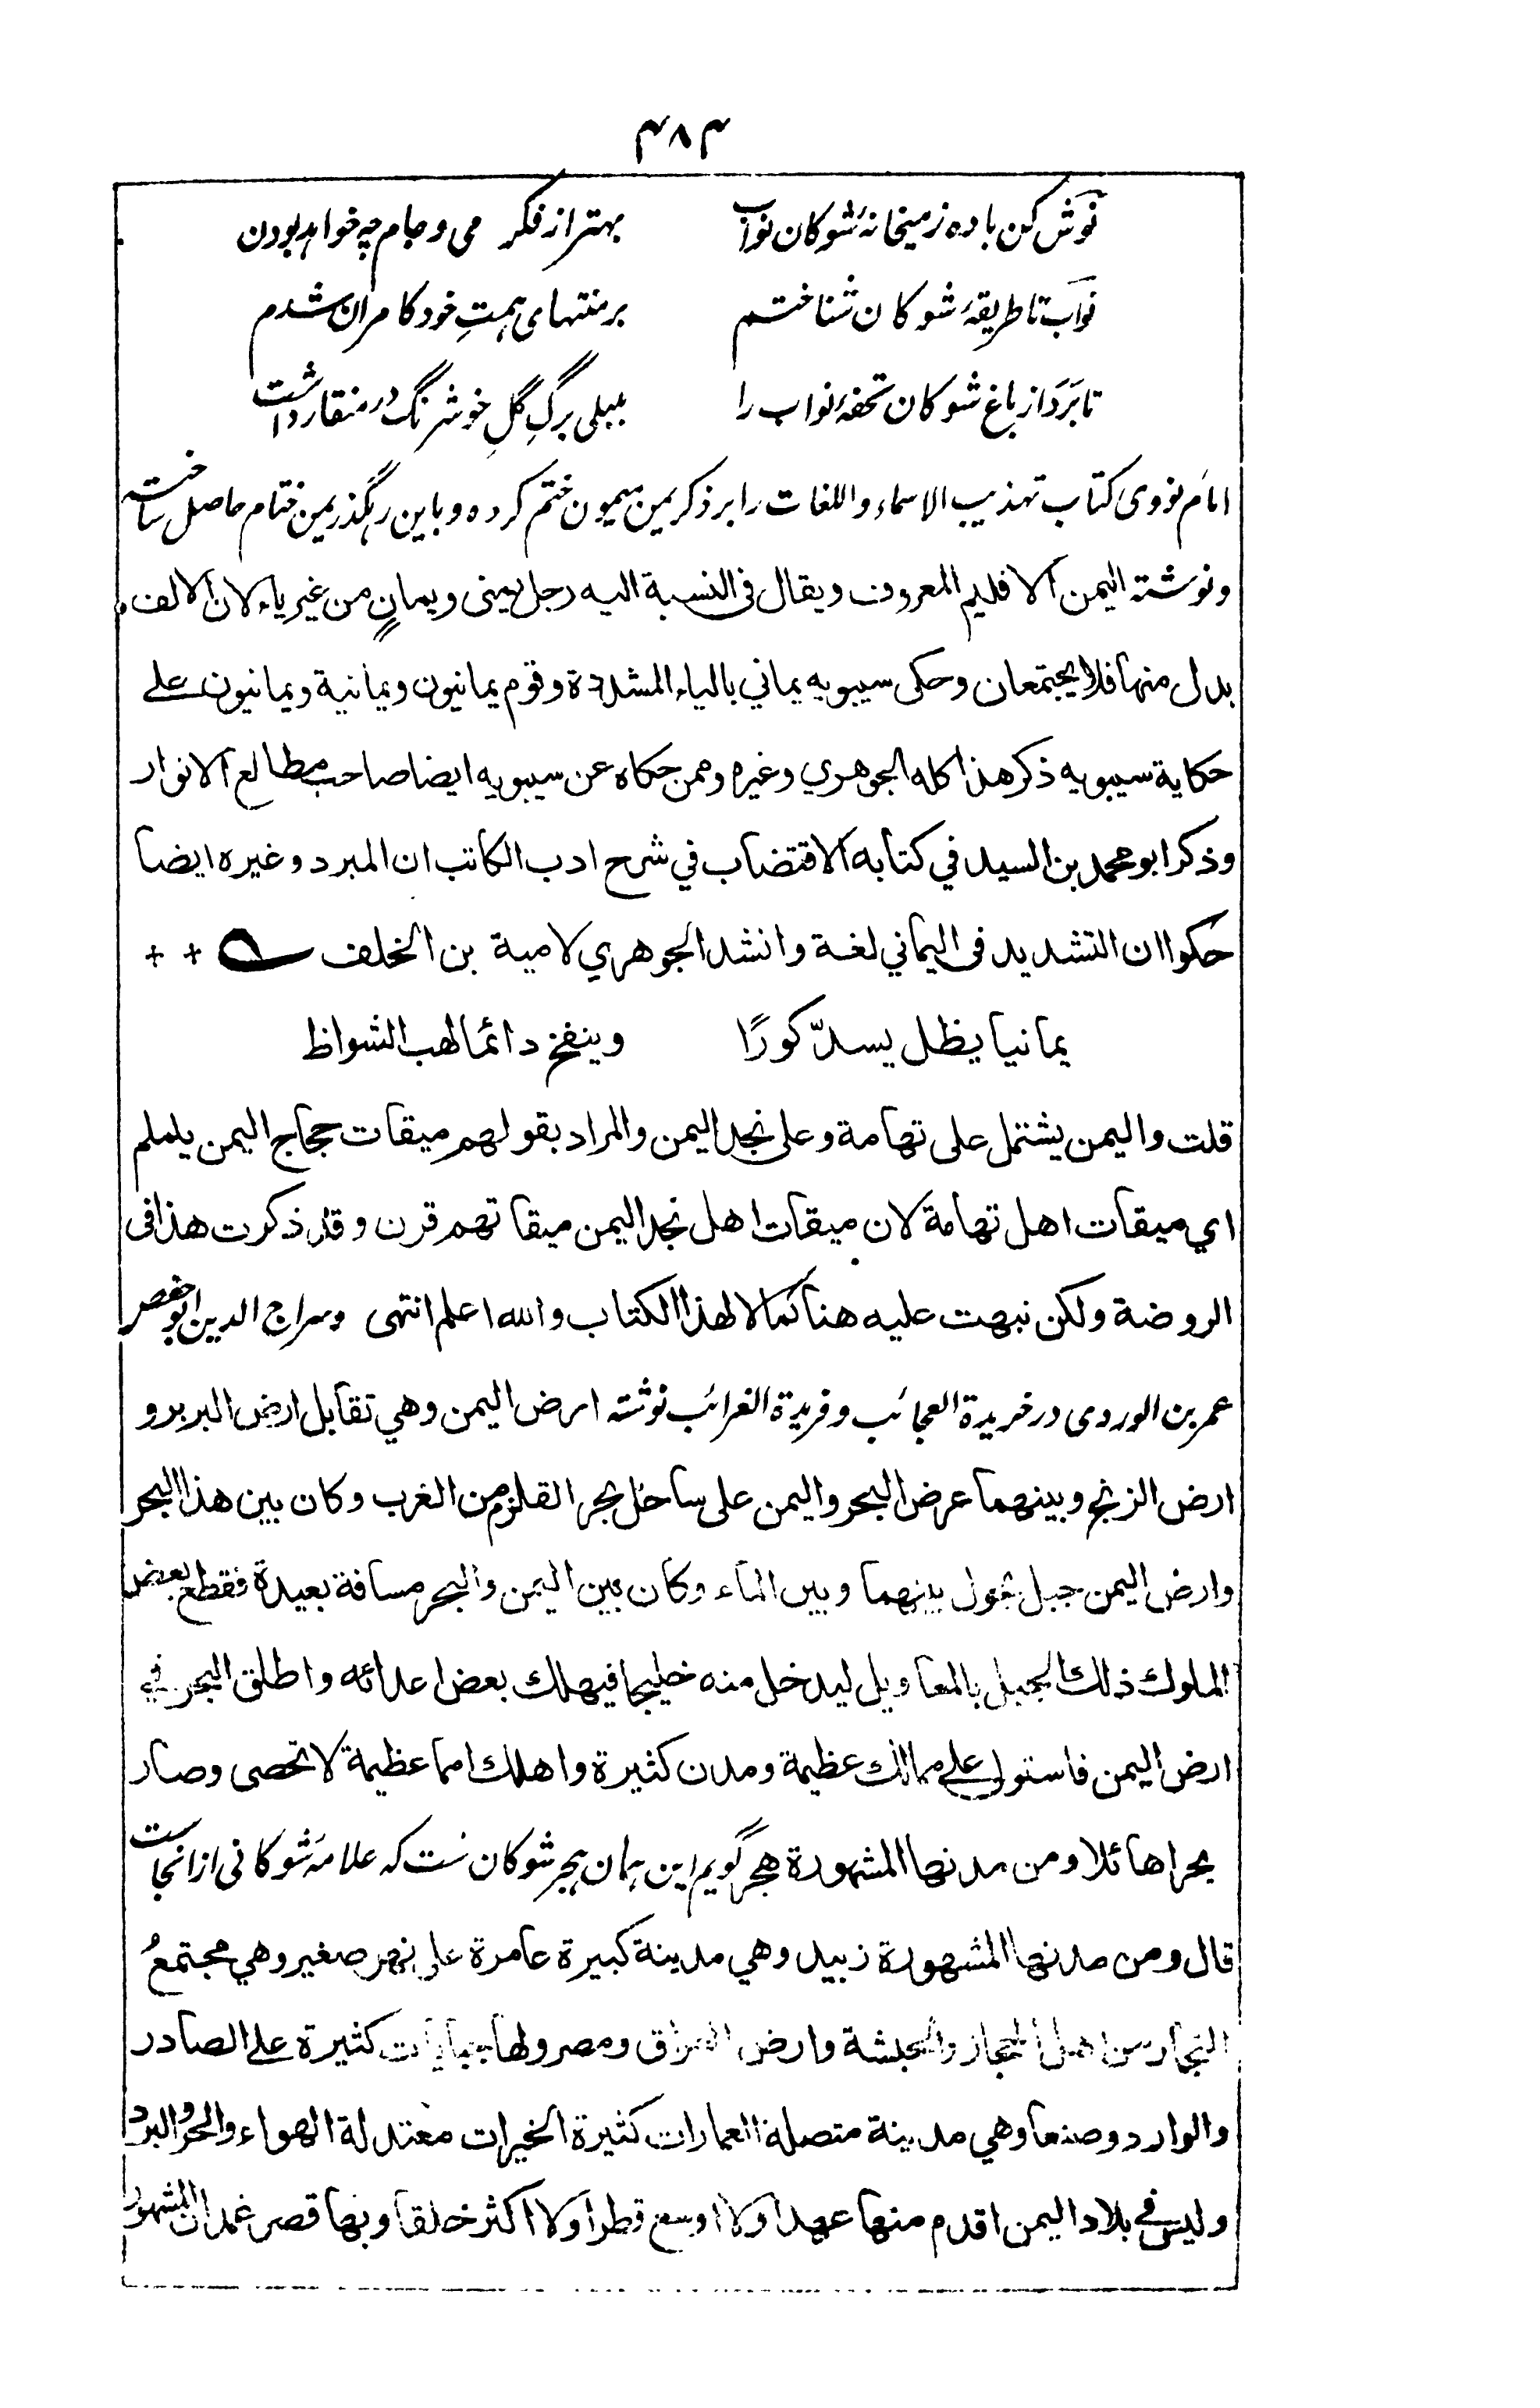 ۴۸۴
نوش کن باده ز میخانهٔ شوکان نواب بهتر از فکر می و جام چه خواهد بودن
نواب تا طریقهٔ شوکان شناختم بر منتهای همتِ خود کامران شدم
تا بَرَد از باغ شوکان تحفهٔ نواب را بلبلی برگِ گلِ خوشرنگ در منقار داشت
امام نووی کتاب تهذیب الاسماء واللغات را بر ذکر یمن میمون ختم کرده و باین رهگذر یمن ختام حاصل ساخته
و نوشته الیمن الاقلیم المعروف ویقال فی النسبة الیه رجل یمنی ویمانٍ من غیر یاء لان الالف
بدل منها فلا یجتمعان وحکی سیبویه یماني بالیاء المشددة وقوم یمانیون ویمانیة ویمانیون علے
حکایة سیبویه ذکر هذا کله الجوهري وغیره وممن حکاه عن سیبویه ایضا صاحب مطالع الانوار
وذکر ابو محمد بن السید في کتابه الاقتضاب في شرح ادب الکاتب ان المبرد وغیره ایضا
حکوا ان التشدید فی الیماني لغة وانشد الجوهري لامیة بن الخلف
یمانیا یظل یسدّ کورًا وینفخ دائما لهب الشواظ
قلت والیمن یشتمل علی تهامة وعلی نجد الیمن والمراد بقولهم میقات حجاج الیمن یلملم
اي میقات اهل تهامة لان میقات اهل نجد الیمن میقاتهم قرن وقد ذکرت هذا فی
الروضة ولکن نبهت علیه هنا کمالا لهذا الکتاب والله اعلم انتهی وسراج الدین ابو حفص
عمر بن الوردی در خریدة العجائب و فریدة الغرائب نوشته ارض الیمن وهي تقابل ارض البربر و
ارض الزنج وبینهما عرض البحر والیمن علی ساحل بحر القلزم من الغرب وکان بین هذا البحر
وارض الیمن جبل یحول بینهما وبین الماء وکان بین الیمن والبحر مسافة بعیدة فقطع بعض
الملوك ذلك الجبل بالمعاویل لیدخل منه خلیجا فیهلك بعض اعدائه واطلق البحر في
ارض الیمن فاستولی علی ممالك عظیمة ومدن کثیرة واهلك امما عظیمة لا تحصی وصار
بحرا هائلا ومن مدنها المشهورة هجر گویم این همان هجر شوکان ست که علامه شوکانی از انجاست
قال ومن مدنها المشهورة زبید وهي مدینة کبیرة عامرة علی نهر صغیر وهي مجتمعُ
التجار من اهل الحجاز والحبشة وارض العراق ومصر ولها جبایات کثیرة علے الصادر
والوارد وصنعا وهي مدینة متصلة العمارات کثیرة الخیرات معتدلة الهواء والحر والبرد
ولیس فے بلاد الیمن اقدم منها عهدا ولا اوسع قطرا ولا اکثر خلقا وبها قصر غمدان المشهور